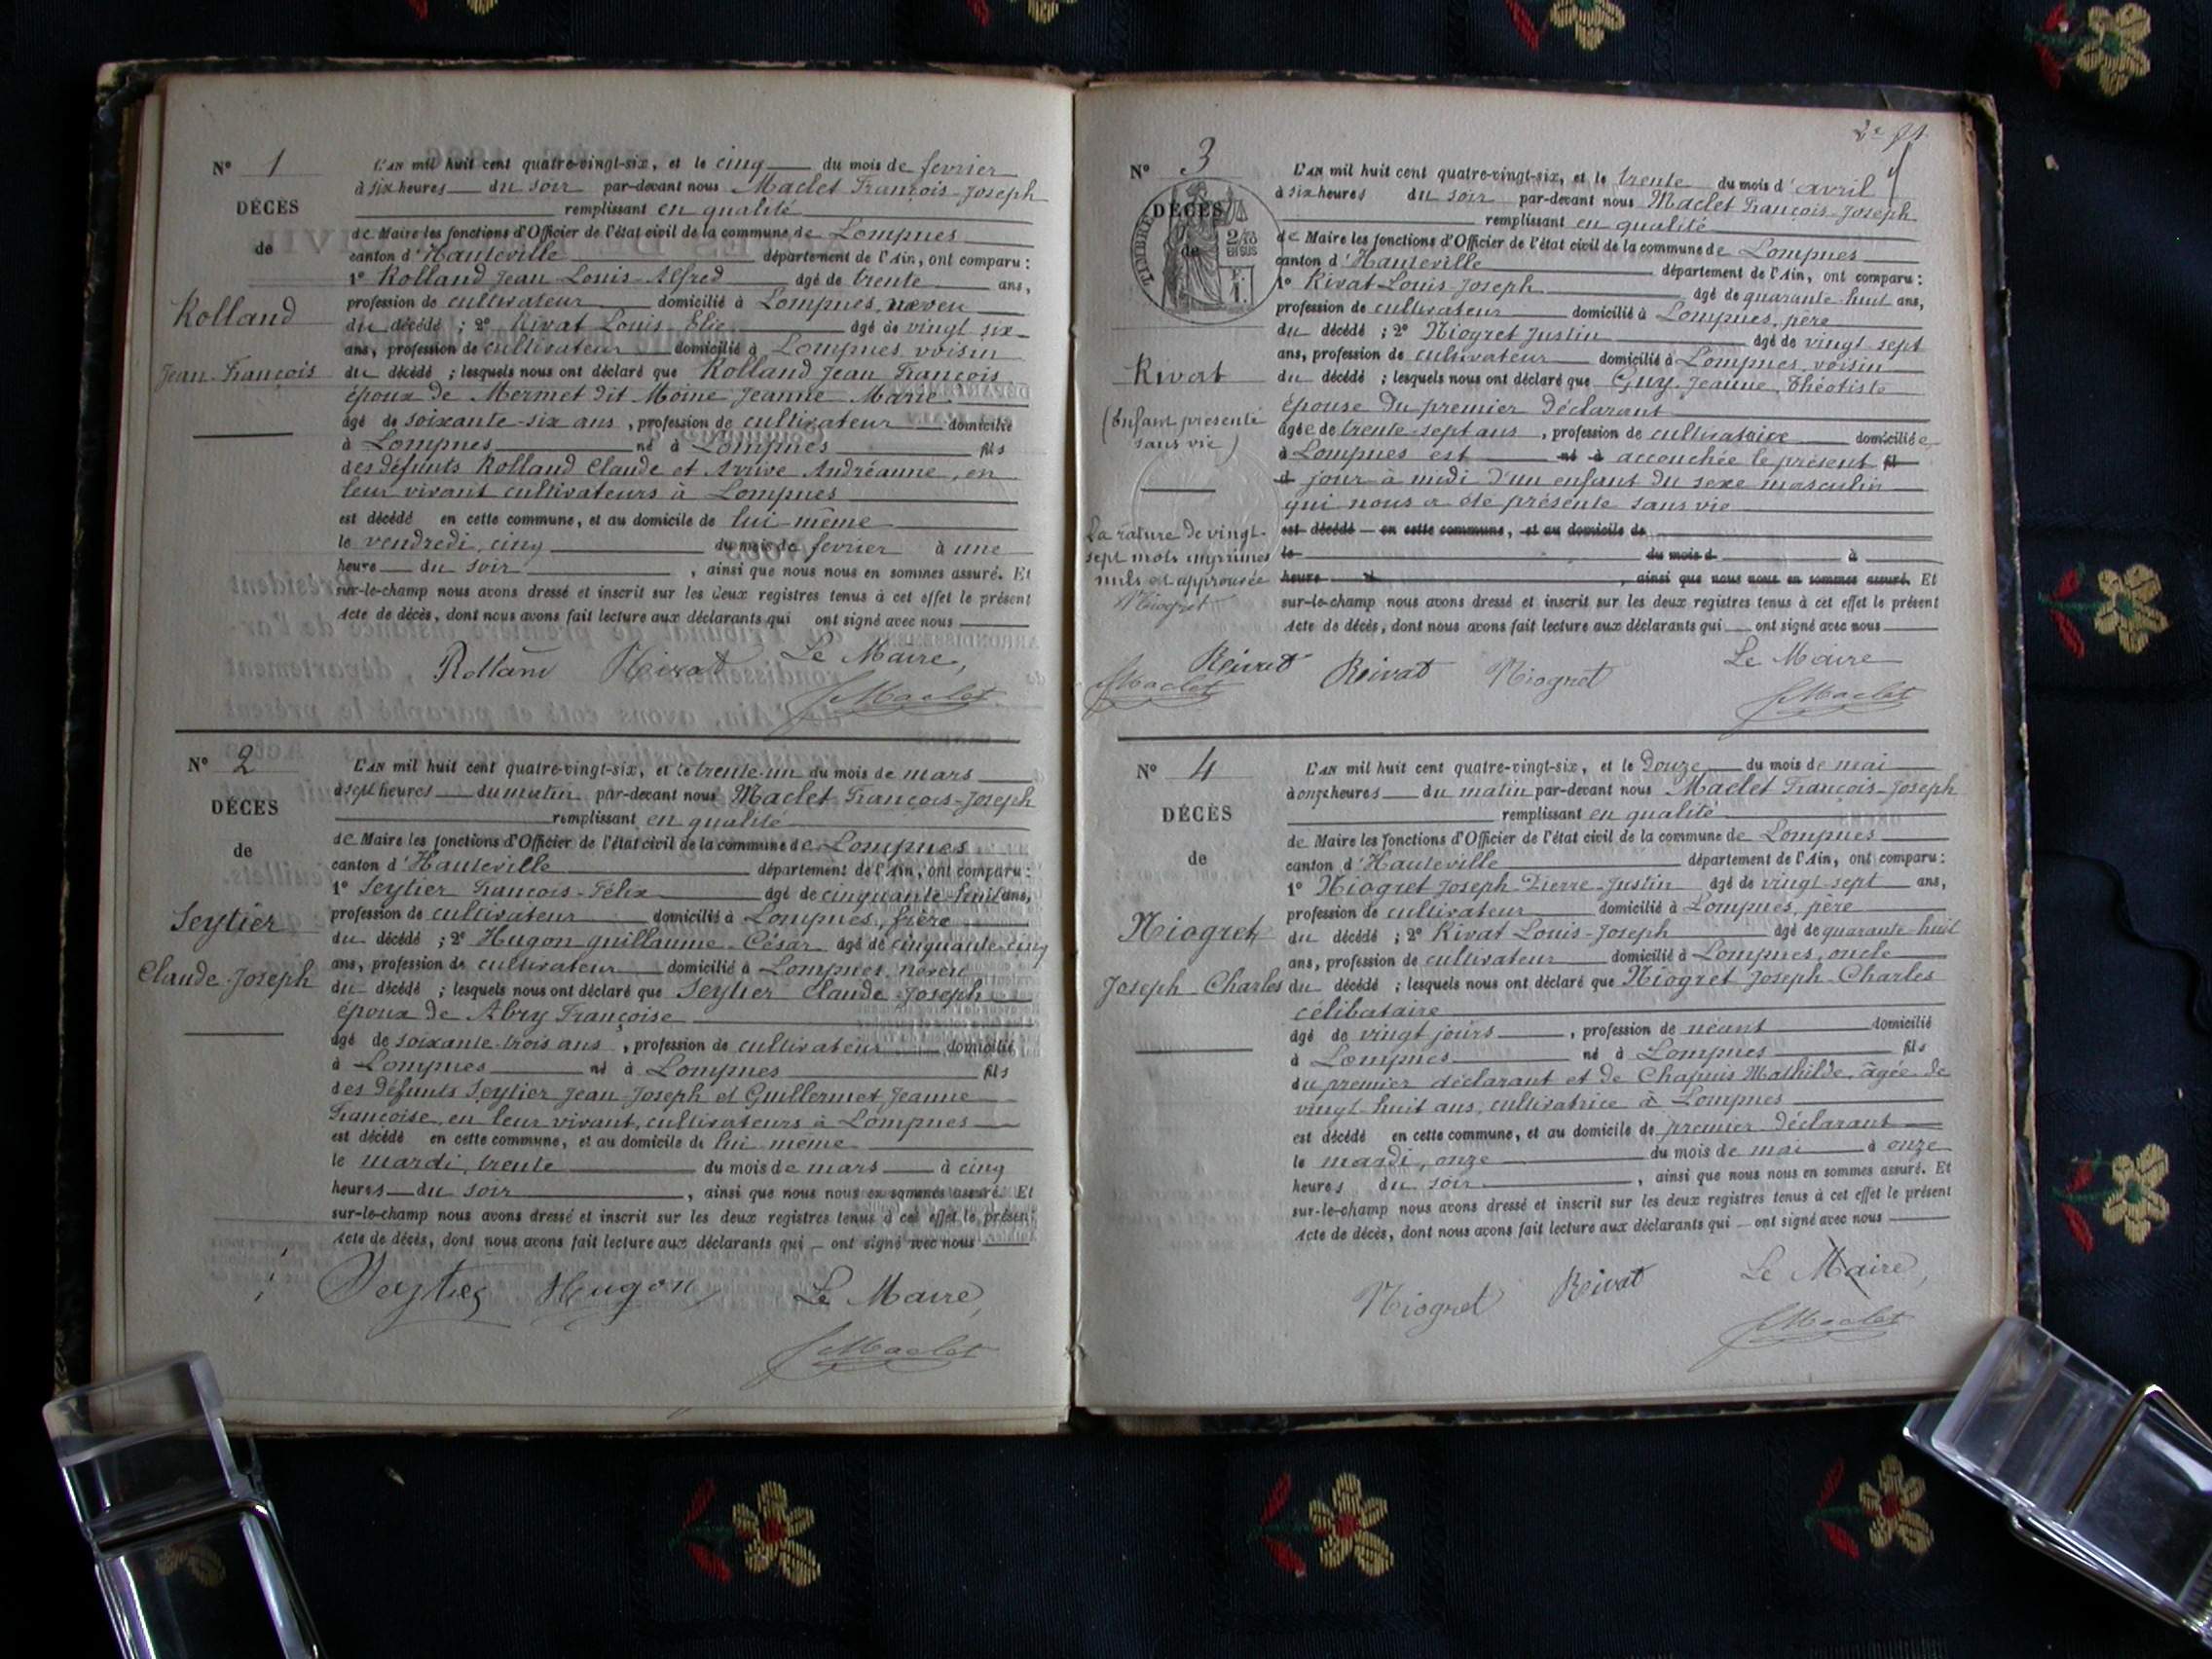 N° 1
DÉCÈS
de
Rolland
Jean-François
L'AN mil huit cent quatre-vingt-six, et le cinq du mois de fevrier
à six heures du soir par-devant nous Maclet François-Joseph
remplissant en qualité
de Maire les fonctions d'Officier de l'état civil de la commune de Lompnes
canton d'Hauteville département de l'Ain, ont comparu :
1° Rolland Jean Louis-Alfred âgé de trente ans,
profession de cultivateur domicilié à Lompnes, neveu
du décédé ; 2° Rivat Louis-Elie âgé de vingt six
ans, profession de cultivateur domicilié à Lompnes voisin
du décédé ; lesquels nous ont déclaré que Rolland Jean François
époux de Mermet dit Moine Jeanne Marie
âgé de soixante-six ans, profession de cultivateur domicilié
à Lompnes né à Lompnes fils
des défunts Rolland Claude et Andréanne, en
leur vivant cultivateurs à Lompnes
est décédé en cette commune, et au domicile de lui-même
le vendredi, cinq du mois de fevrier à une
heure du soir, ainsi que nous nous en sommes assuré. Et
sur-le-champ nous avons dressé et inscrit sur les deux registres tenus à cet effet le présent
Acte de décès, dont nous avons fait lecture aux déclarants qui ont signé avec nous
Rolland Rivat Le Maire,
Maclet
N° 2
DÉCÈS
de
Seytier
Claude-Joseph
L'AN mil huit cent quatre-vingt-six, et le trente-un du mois de mars
à sept heures du matin par-devant nous Maclet François-Joseph
remplissant en qualité
de Maire les fonctions d'Officier de l'état civil de la commune de Lompnes
canton d'Hauteville département de l'Ain, ont comparu :
1° Seytier François-Félix âgé de cinquante-huit ans,
profession de cultivateur domicilié à Lompnes, frère
du décédé ; 2° Hugon guillaume-César âgé de cinquante-cinq
ans, profession de cultivateur domicilié à Lompnes, neveu
du décédé ; lesquels nous ont déclaré que Seytier Claude-Joseph
époux de Abry Françoise
âgé de soixante-trois ans, profession de cultivateur domicilié
à Lompnes né à Lompnes fils
des défunts Seytier Jean-Joseph et Guillermet Jeanne
Françoise, en leur vivant, cultivateurs à Lompnes
est décédé en cette commune, et au domicile de lui même
le mardi, trente du mois de mars à cinq
heures du soir, ainsi que nous nous en sommes assuré. Et
sur-le-champ nous avons dressé et inscrit sur les deux registres tenus à cet effet le présent
Acte de décès, dont nous avons fait lecture aux déclarants qui ont signé avec nous
Seytier Hugon Le Maire,
Maclet
N° 3
DÉCÈS
de
TIMBRE
2/10 EN SUS
Rivat
(Enfant présenté
sans vie)
La rature de vingt-
sept mots imprimés
nuls est approuvée
Niogret
Rivat
Maclet
L'AN mil huit cent quatre-vingt-six, et le trente du mois d'avril
à six heures du soir par-devant nous Maclet François-Joseph
remplissant en qualité
de Maire les fonctions d'Officier de l'état civil de la commune de Lompnes
canton d'Hauteville département de l'Ain, ont comparu :
1° Rivat Louis-Joseph âgé de quarante-huit ans,
profession de cultivateur domicilié à Lompnes, père
du décédé ; 2° Niogret Justin âgé de vingt sept
ans, profession de cultivateur domicilié à Lompnes, voisin
du décédé ; lesquels nous ont déclaré que Guy, Jeanne, Théotiste
épouse du premier déclarant
âgée de trente-sept ans, profession de cultivatrice domiciliée
à Lompnes est né à accouchée le présent fil
d jour à midi d'un enfant du sexe masculin
qui nous a été présenté sans vie
est décédé en cette commune, et au domicile de
le du mois d à
heure d, ainsi que nous nous en sommes assuré. Et
sur-le-champ nous avons dressé et inscrit sur les deux registres tenus à cet effet le présent
Acte de décès, dont nous avons fait lecture aux déclarants qui ont signé avec nous
Rivat Niogret Le Maire
Maclet
N° 4
DÉCÈS
de
Niogret
Joseph-Charles
L'AN mil huit cent quatre-vingt-six, et le douze du mois de mai
à onze heures du matin par-devant nous Maclet François-Joseph
remplissant en qualité
de Maire les fonctions d'Officier de l'état civil de la commune de Lompnes
canton d'Hauteville département de l'Ain, ont comparu :
1° Niogret Joseph-Pierre-Justin âgé de vingt-sept ans,
profession de cultivateur domicilié à Lompnes, père
du décédé ; 2° Rivat Louis-Joseph âgé de quarante-huit
ans, profession de cultivateur domicilié à Lompnes, oncle
du décédé ; lesquels nous ont déclaré que Niogret Joseph-Charles
célibataire
âgé de vingt jours, profession de néant domicilié
à Lompnes né à Lompnes fils
du premier déclarant et de Chapuis Mathilde, âgée de
vingt-huit ans, cultivatrice à Lompnes
est décédé en cette commune, et au domicile de premier déclarant
le mardi, onze du mois de mai à onze
heures du soir, ainsi que nous nous en sommes assuré. Et
sur-le-champ nous avons dressé et inscrit sur les deux registres tenus à cet effet le présent
Acte de décès, dont nous avons fait lecture aux déclarants qui ont signé avec nous
Niogret Rivat Le Maire,
Maclet